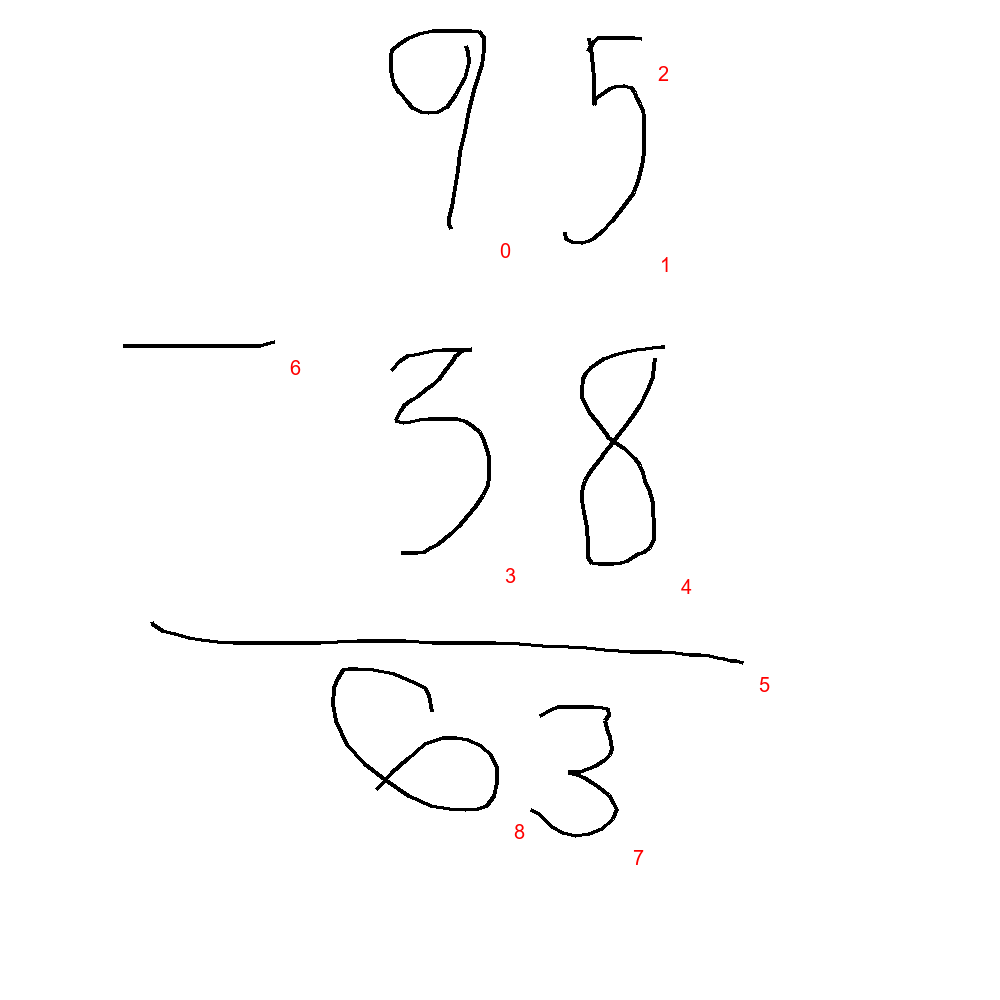 95
2
0 1
- 38
6
3 4
5
63
8 7